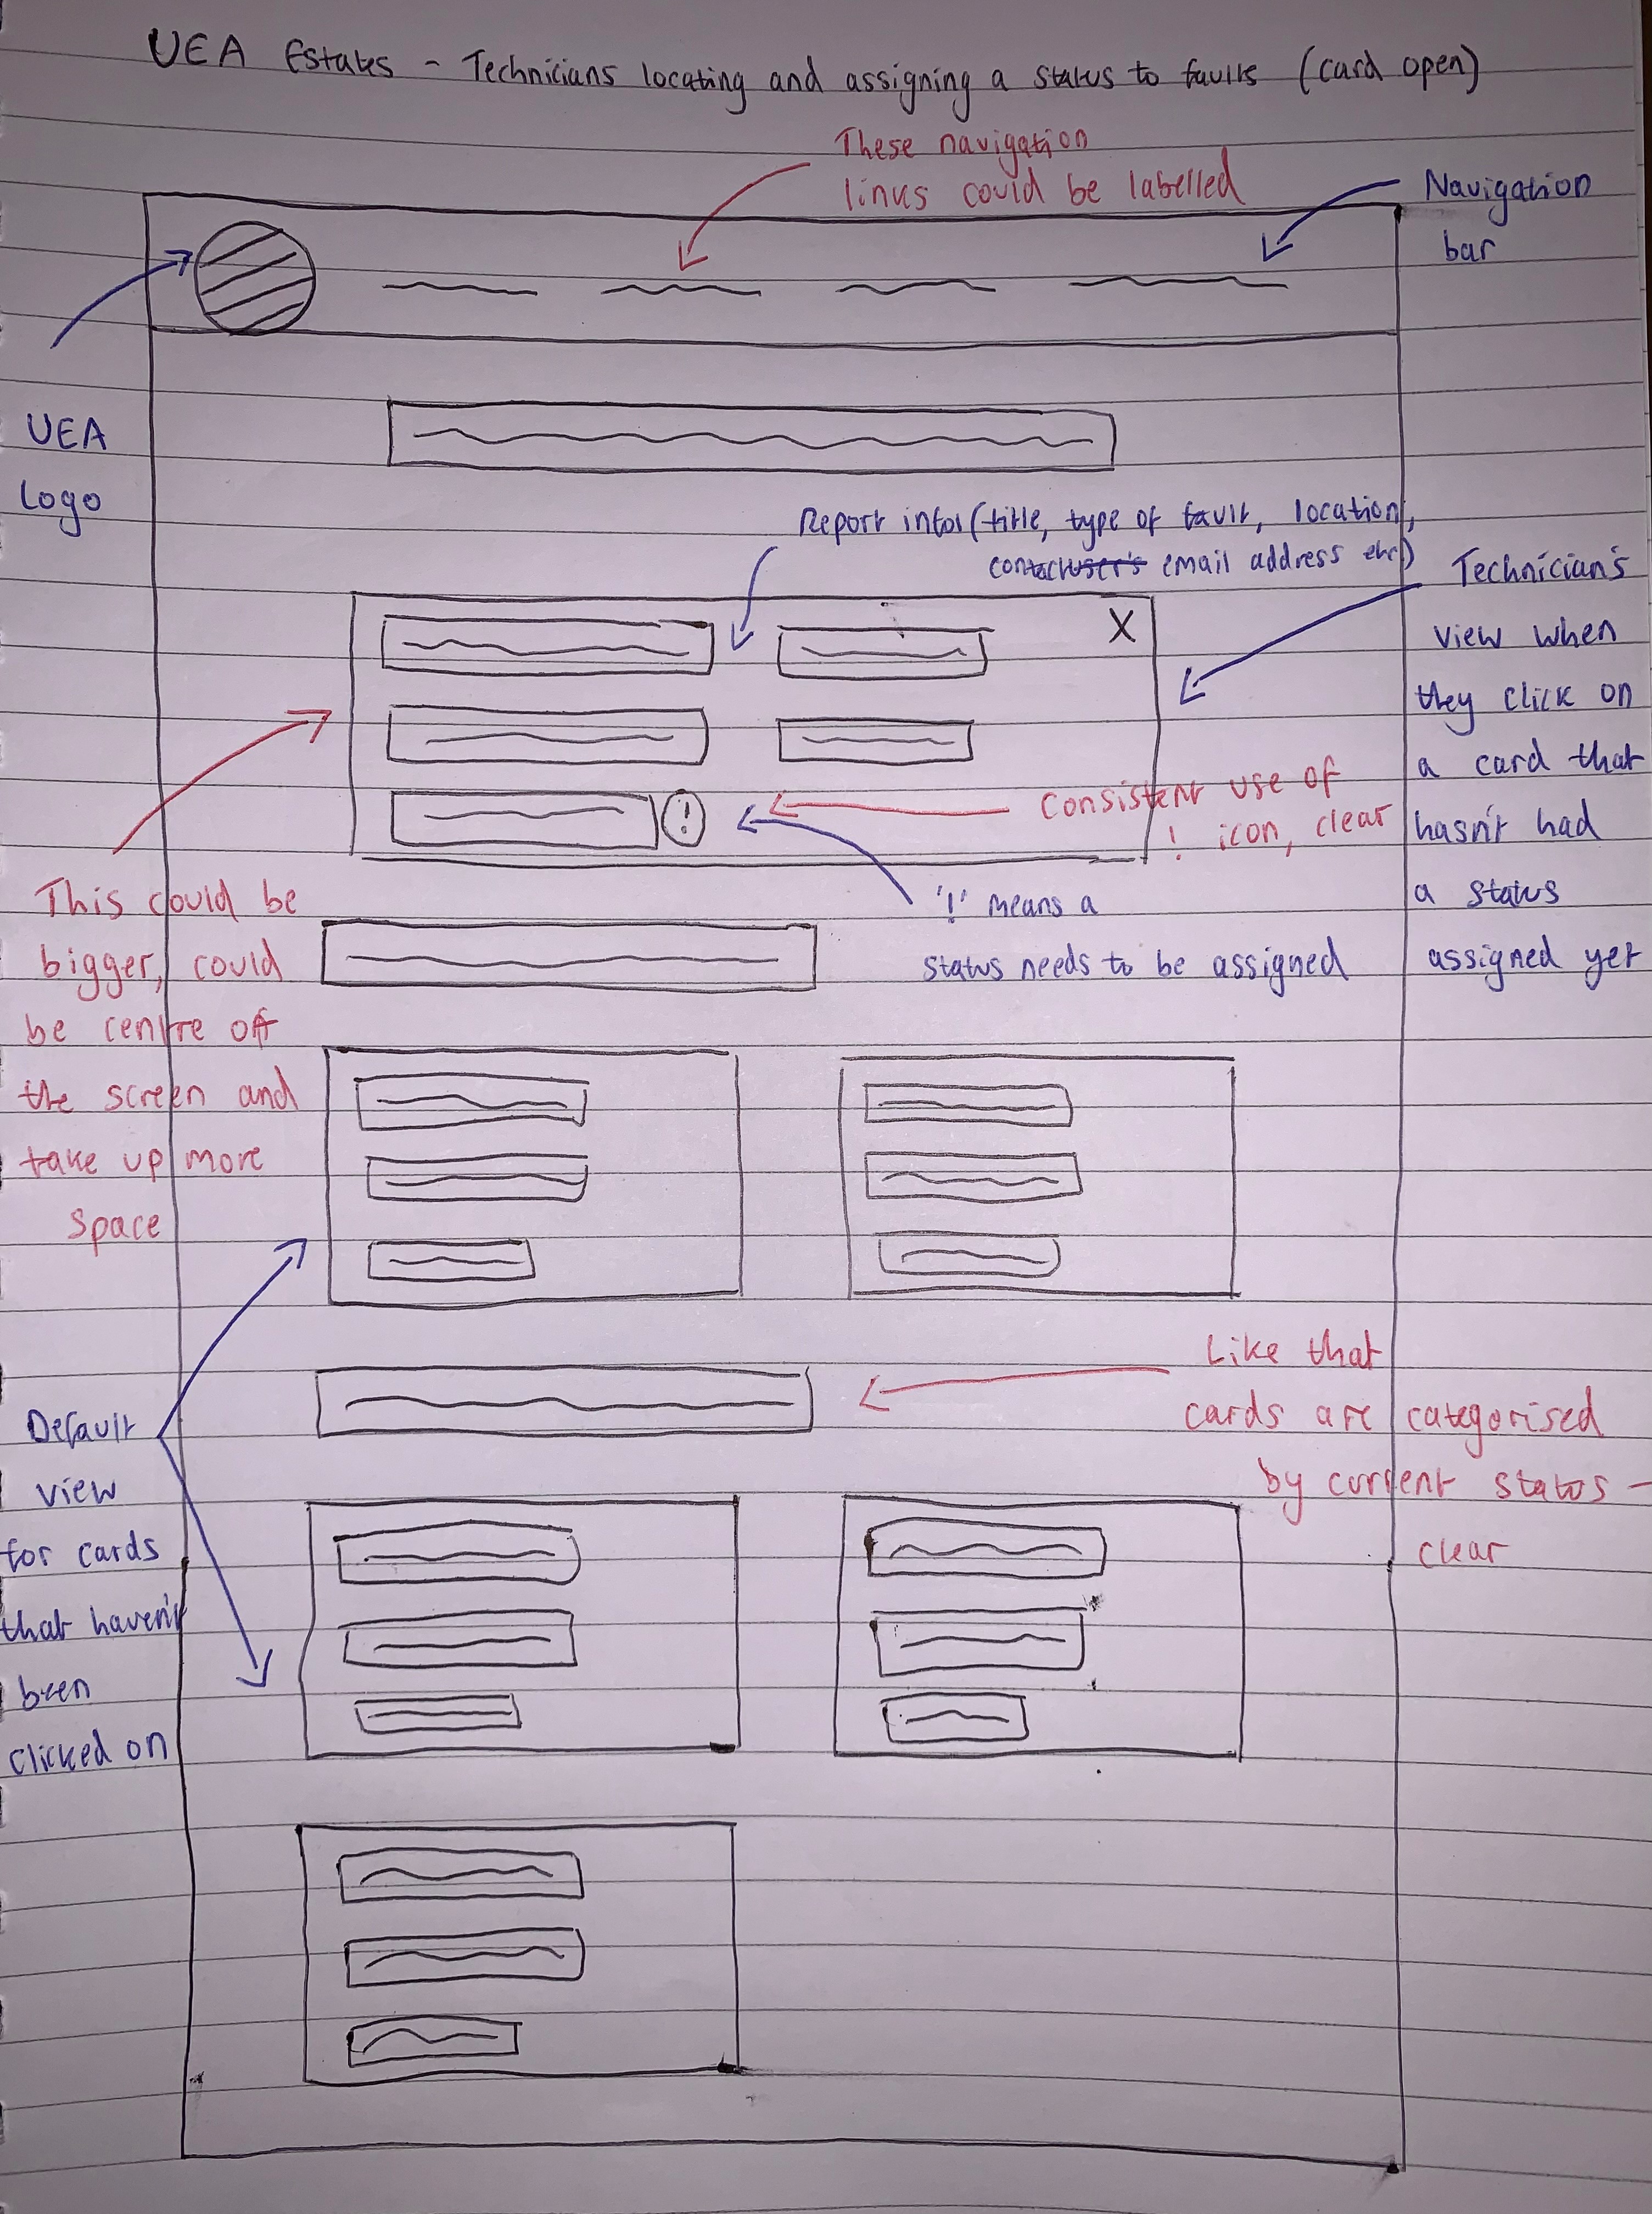 UEA Estates - Technicians locating and assigning a status to faults (card open)
These navigation
links could be labelled
Navigation
bar
UEA
Logo
Report info (title, type of fault, location,
email address etc)
Technician's
view when
they click on
a card that
hasn't had
a status
assigned yet
X
!
Consistent use of
! icon, clear
'!' means a
status needs to be assigned
This could be
bigger, could
be centre off
the screen and
take up more
space
Default
view
for cards
that haven't
been
clicked on
Like that
cards are categorised
by current status -
clear